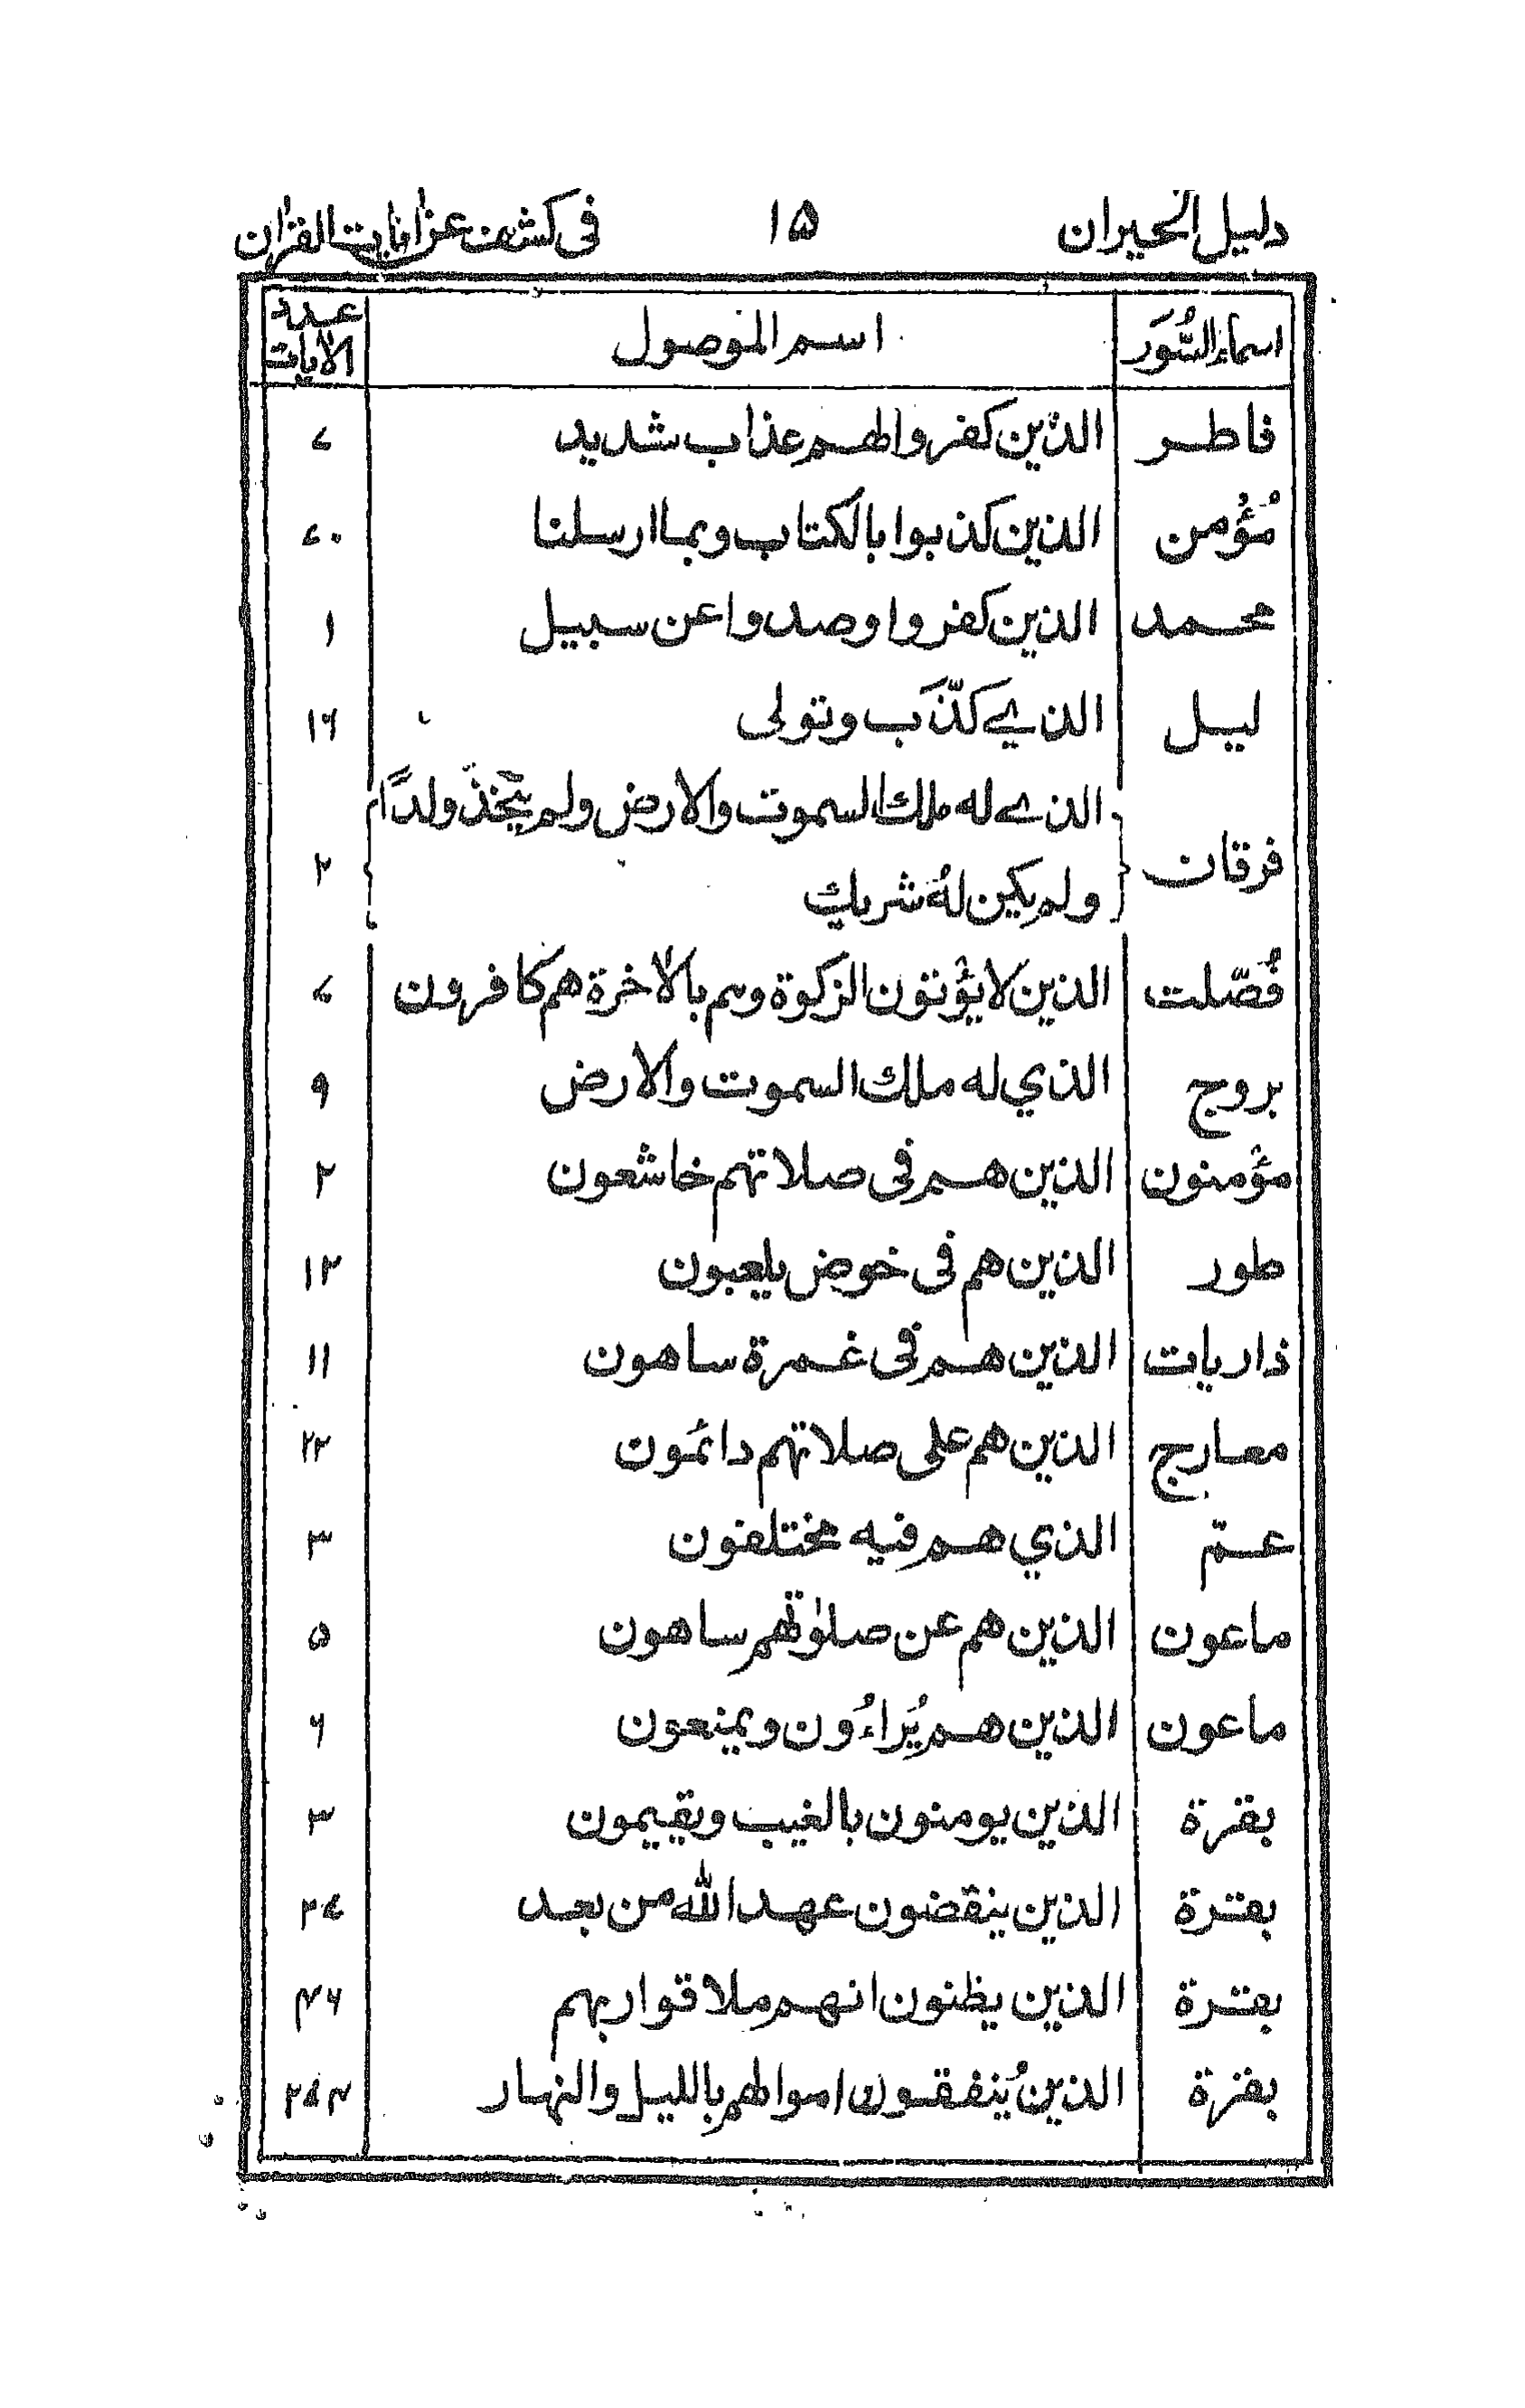 دليل الحيران ١٥ في كشف عن آيات القرآن
اسماء السُّوَر اسم الموصول عدد الايات
فاطر الذين كفروا لهم عذاب شديد ٧
مُؤمن الذين كذبوا بالكتاب وبما ارسلنا ٧٠
محمد الذين كفروا وصدوا عن سبيل ١
ليل الذي كذَّب وتولى ١٦
الذي له ملك السموت والارض ولم يتخذ ولدًا
فرقان ٢
ولم يكن له شريك
فُصّلت الذين لا يؤتون الزكوة وهم بالاخرة هم كافرون ٧
بروج الذي له ملك السموت والارض ٩
مؤمنون الذين هم في صلاتهم خاشعون ٢
طور الذين هم في خوض يلعبون ١٢
ذاريات الذين هم في غمرة ساهون ١١
معارج الذين هم على صلاتهم دائمون ٢٣
عمّ الذي هم فيه مختلفون ٣
ماعون الذين هم عن صلوٰتهم ساهون ٥
ماعون الذين هم يُرَاءُون ويمنعون ٦
بقرة الذين يومنون بالغيب ويقيمون ٣
بقرة الذين ينقضون عهد الله من بعد ٢٧
بقرة الذين يظنون انهم ملاقوا ربهم ٤٦
بقرة الذين يُنفقون اموالهم بالليل والنهار ٢٧٤